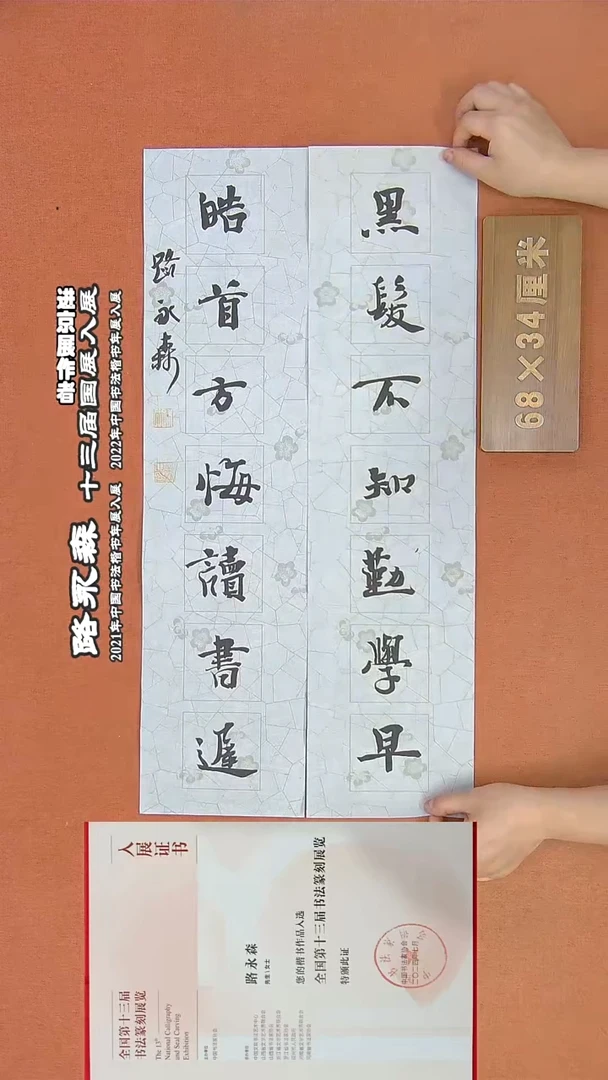 黑髮不知勤學早
皓首方悔讀書遲
路永森
68×34厘米
路永森 十三届国展入展
2021年中国书法楷书年展入展 2022年中国书法楷书年展入展
入展证书
全国第十三届
书法篆刻展览
The 13th
National Calligraphy
and Seal Carving
Exhibition
路永森
您的楷书作品入选
全国第十三届书法篆刻展览
特颁此证